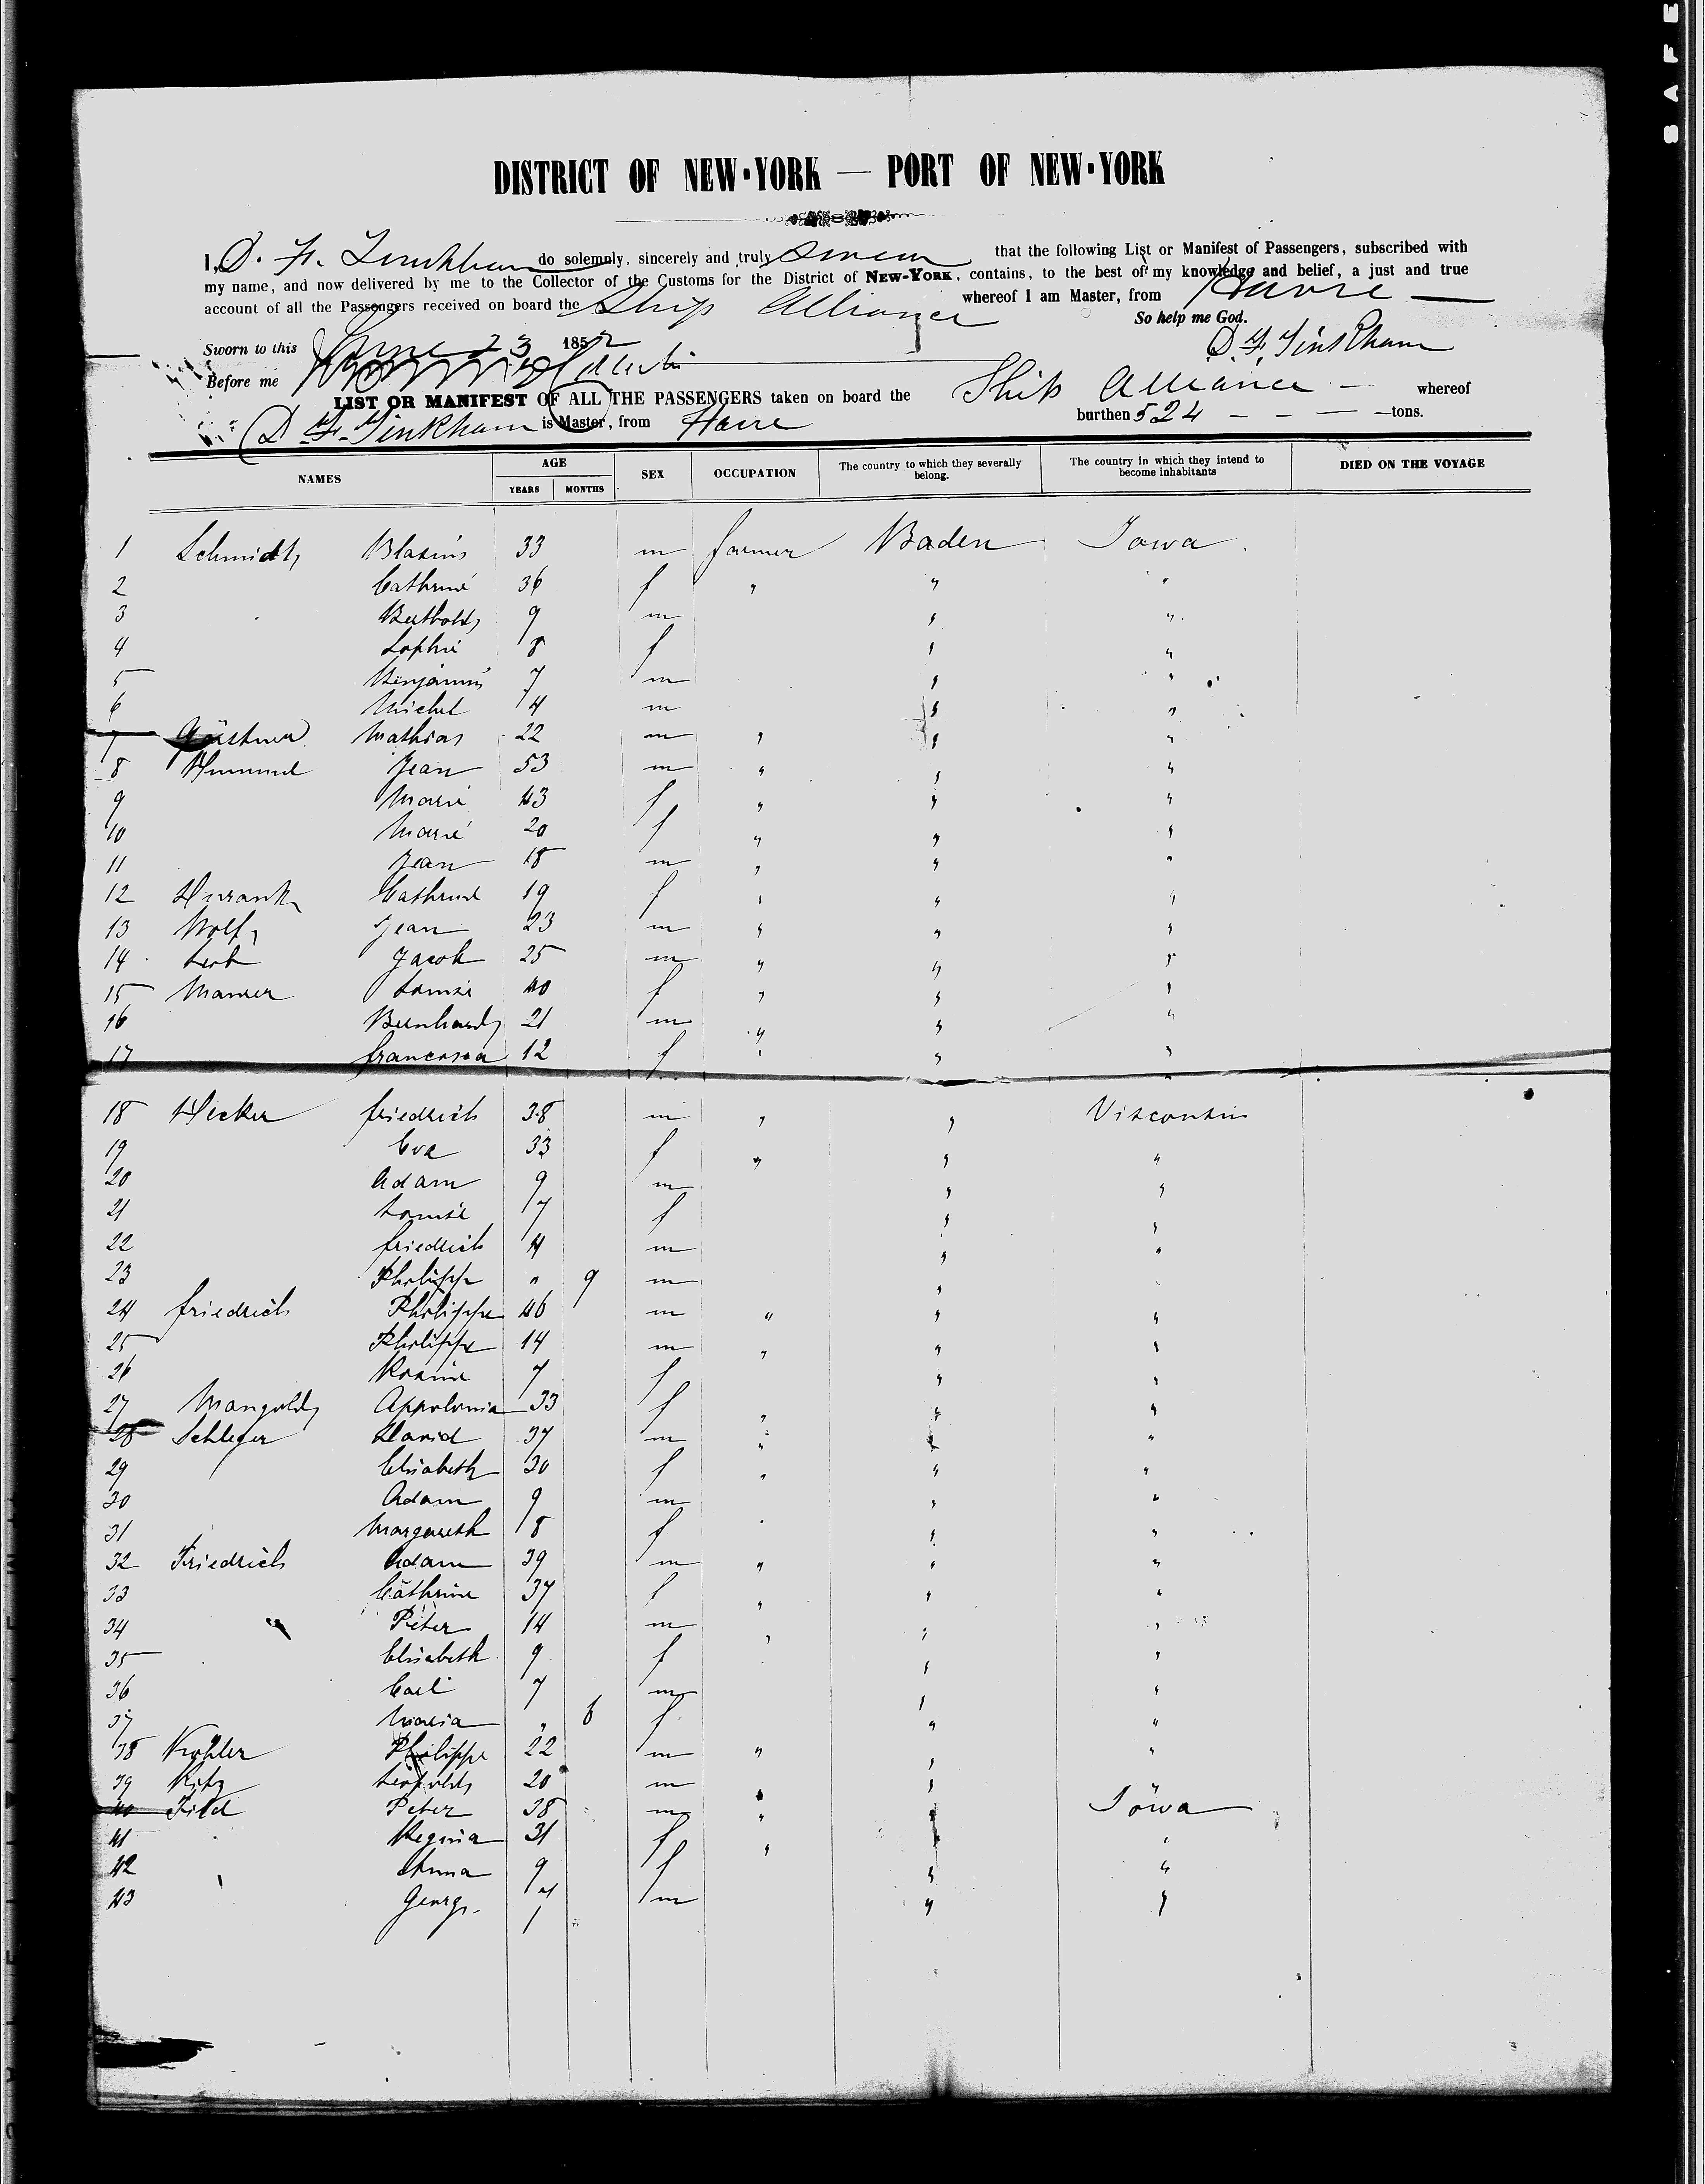 SAFE
DISTRICT OF NEW-YORK — PORT OF NEW-YORK
I, D. F. Tinkham do solemnly, sincerely and truly swear that the following List or Manifest of Passengers, subscribed with
my name, and now delivered by me to the Collector of the Customs for the District of NEW-YORK, contains, to the best of my knowledge and belief, a just and true
account of all the Passengers received on board the Ship Alliance whereof I am Master, from Havre —
So help me God.
Sworn to this June 23 1852 D. F. Tinkham
Before me
LIST OR MANIFEST OF ALL THE PASSENGERS taken on board the Ship Alliance — whereof
D. F. Tinkham is Master, from Havre burthen 524 — — — — tons.
NAMES AGE YEARS MONTHS SEX OCCUPATION The country to which they severally belong. The country in which they intend to become inhabitants DIED ON THE VOYAGE
1 Schmidt Blasius 33 m farmer Baden Iowa
2 Cathrine 36 f " " "
3 Berthold 9 m " "
4 Sophie 8 f " "
5 Benjamin 7 m " "
6 Michel 4 m " "
7 Mathias 22 m " " "
8 Jean 53 m " " "
9 Marie 43 f " " "
10 Marie 20 f " " "
11 Jean 18 m " " "
12 Cathrine 19 f " " "
13 Wolf Jean 23 m " " "
14 Jacob 25 m " " "
15 Maurer Louise 40 f " " "
16 Bernhard 21 m " " "
17 Francisca 12 f " " "
18 Hecker friedrich 38 m " " Visconsin
19 Eva 33 f " " "
20 Adam 9 m " "
21 Louise 7 f " "
22 friedrich 4 m " "
23 Philippe " 9 m "
24 friedrich Philippe 46 m " " "
25 Philippe 14 m " " "
26 Rosine 7 f " "
27 Mangold Appolonia 33 f " " "
28 Schleger David 37 m " " "
29 Elisabeth 30 f " " "
30 Adam 9 m " "
31 Margareth 8 f " "
32 Friedrich Adam 39 m " " "
33 Cathrine 37 f " " "
34 Peter 14 m " " "
35 Elisabeth 9 f " "
36 Carl 7 m " "
37 Maria " 6 f " "
38 Kohler Philippe 22 m " " "
39 Ritz Leopold 20 m " " "
40 Fild Peter 38 m " " Iowa
41 Regina 31 f " " "
42 Anna 9 f " "
43 Georg. 4 m " "